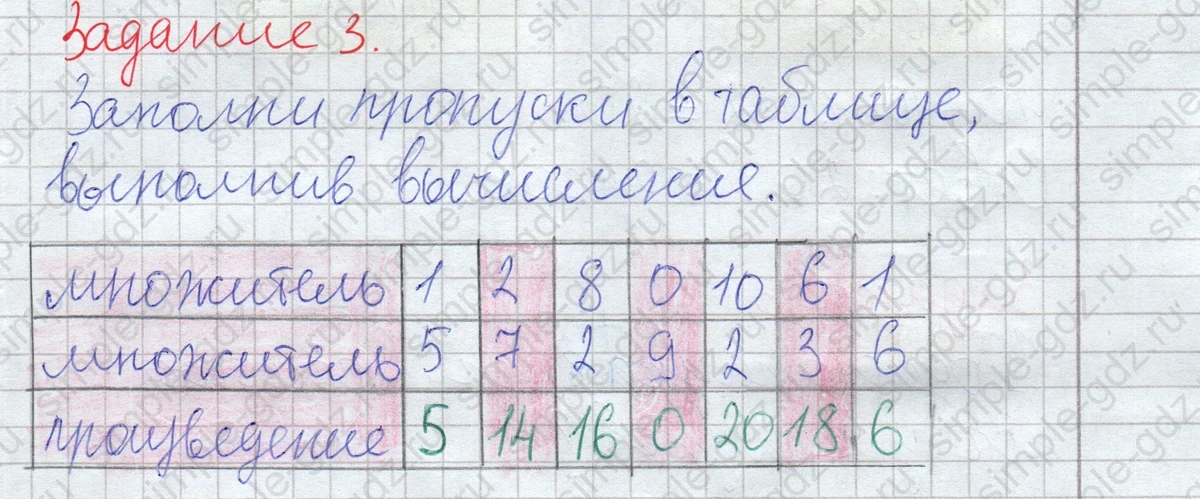 Задание 3.
Заполни пропуски в таблице,
выполнив вычисление.
множитель 1 2 8 0 10 6 1
множитель 5 7 2 9 2 3 6
произведение 5 14 16 0 20 18 6
simple-gdz.ru